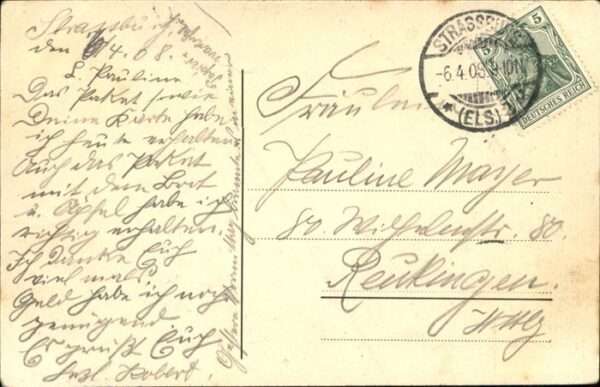 Strassburg
den 6/4.08.
L. Pauline
Das Paket sowie
Deine Karte habe
ich heute erhalten
Auch das Paket
mit dem Brot
u. Äpfel habe ich
richtig erhalten.
Ich danke Euch
viel mals
Geld habe ich noch
genügend
Es grüßt Euch
Robert.
Fräulein
Pauline Mayer
80. Wilhelmstr. 80.
Reutlingen.
Wttbg
STRASSBURG
-6.4.08.9-10N
* (ELS.) *
5
DEUTSCHES REICH